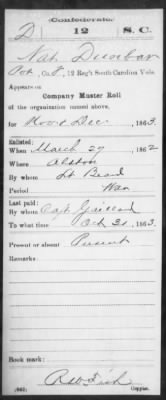 Confederate.
D 12 S. C.
Nat Dunbar
Pvt, Co. F, 12 Reg't South Carolina Vols.
Appears on
Company Master Roll
of the organization named above,
for Nov & Dec, 1863.
Enlisted:
When March 27, 1862
Where Alston
By whom Lt Beard
Period War
Last paid:
By whom Capt Gaillard
To what time Oct 31, 1863.
Present or absent Present
Remarks:
Book mark:
(642)
Copyist.